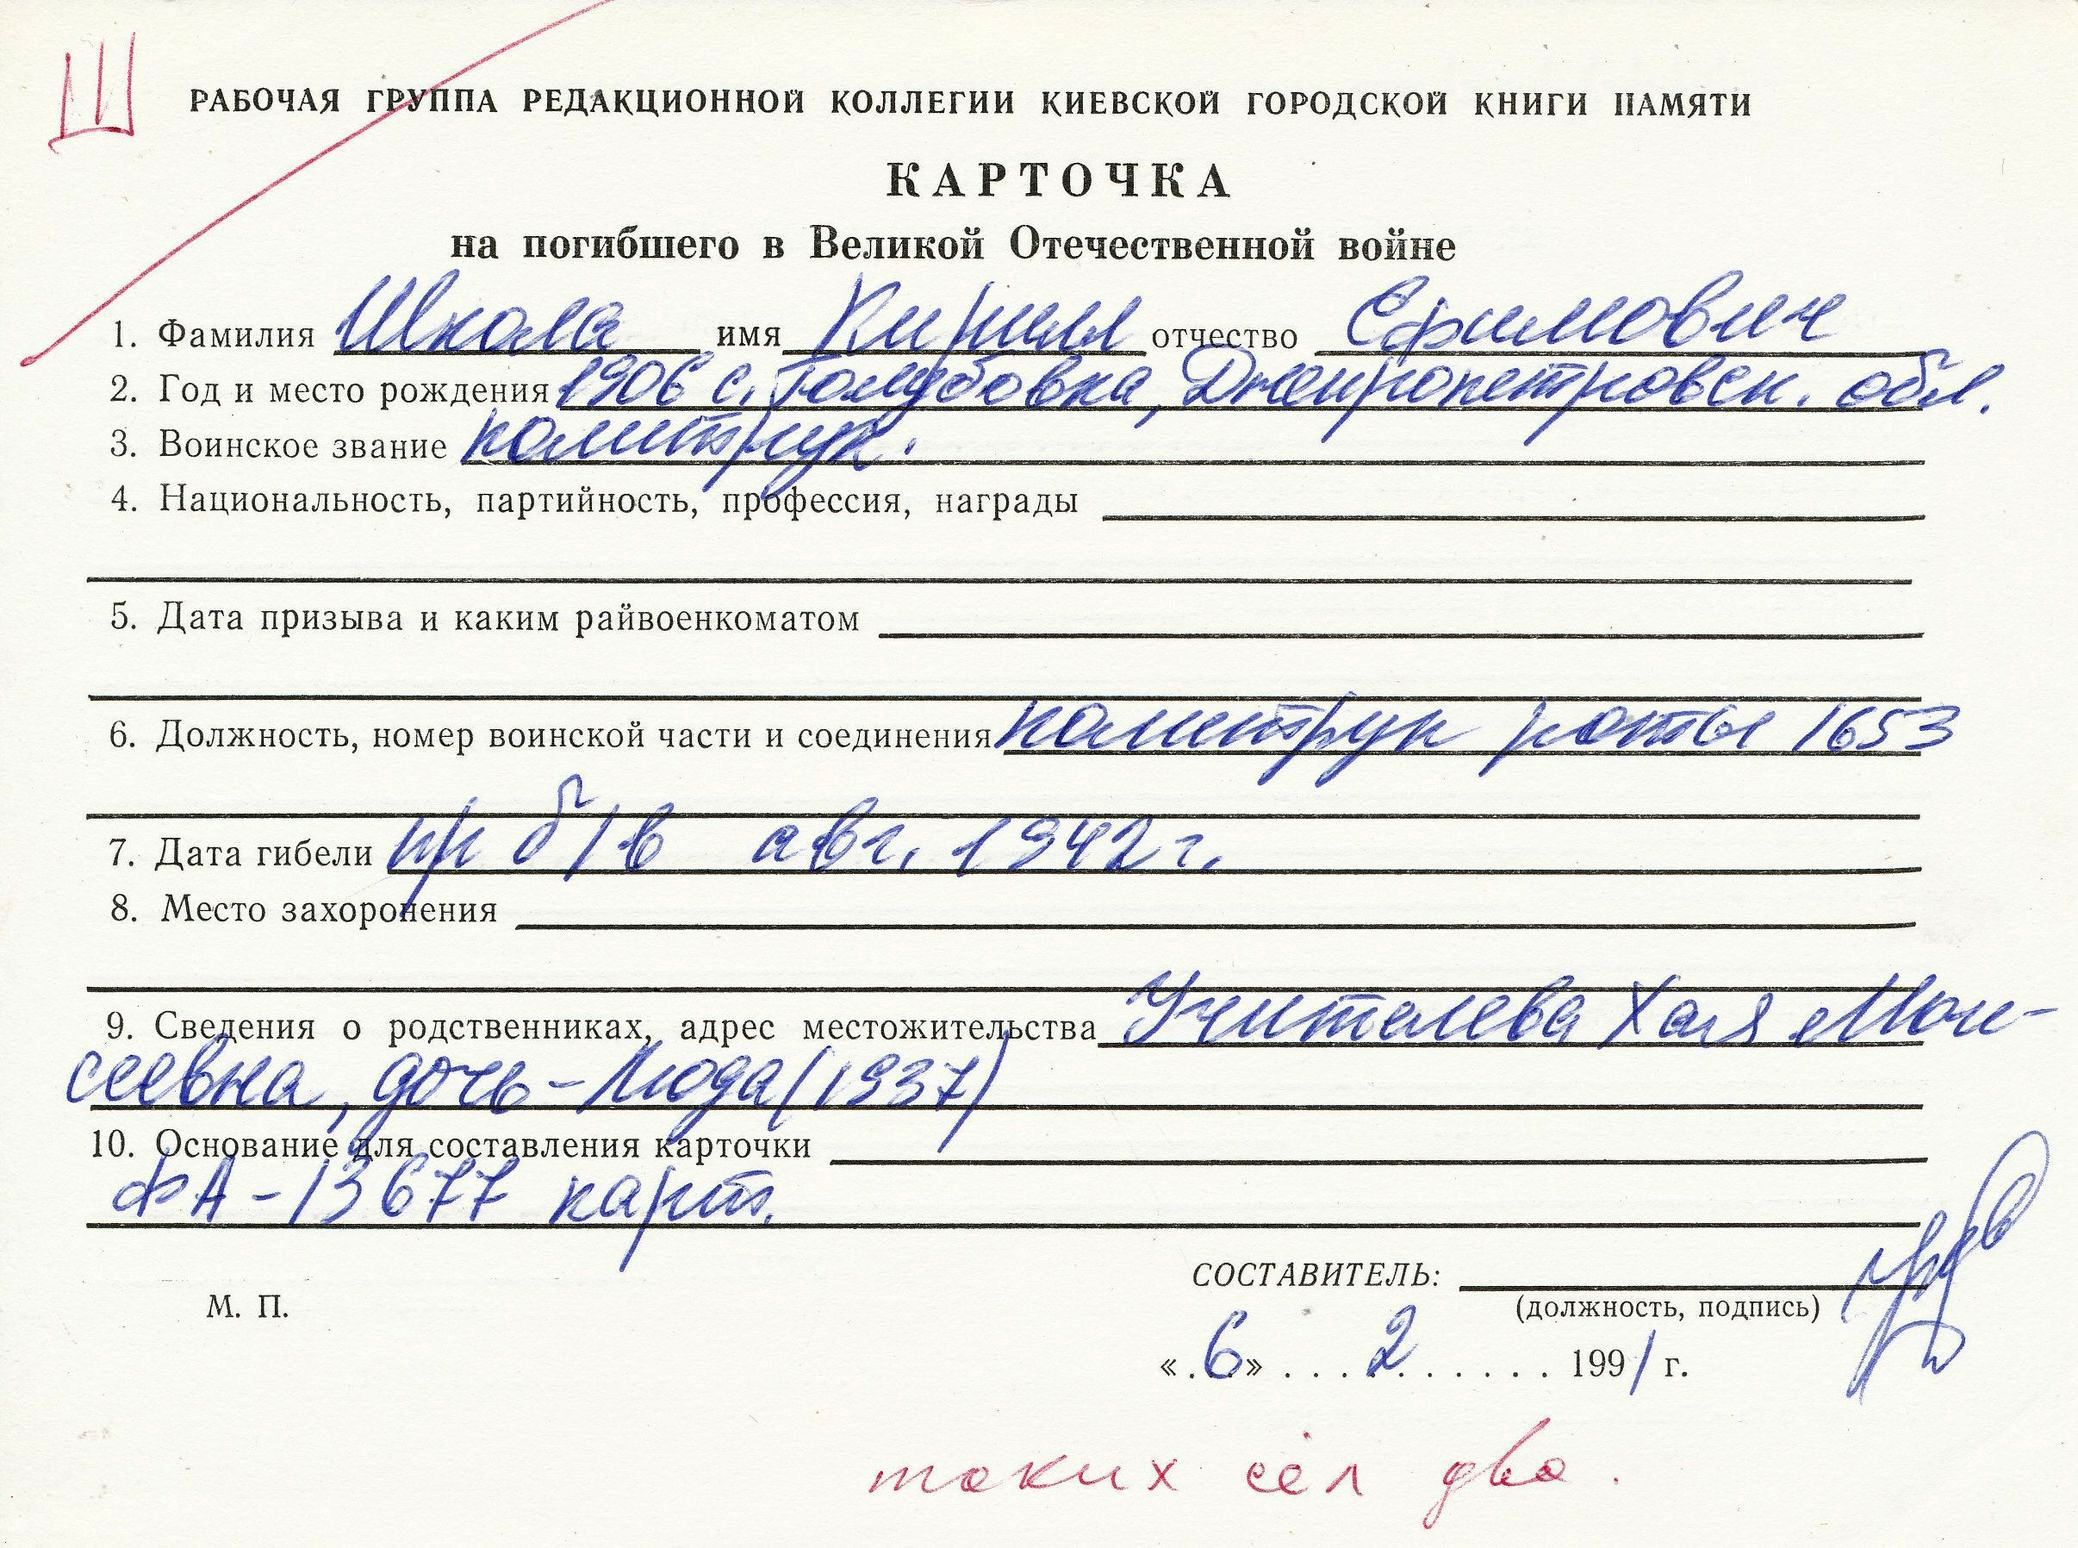 Ш
РАБОЧАЯ ГРУППА РЕДАКЦИОННОЙ КОЛЛЕГИИ КИЕВСКОЙ ГОРОДСКОЙ КНИГИ ПАМЯТИ
КАРТОЧКА
на погибшего в Великой Отечественной войне
1. Фамилия Школа имя Кирилл отчество Ефимович
2. Год и место рождения 1906 с. Голубовка, Днепропетровск. обл.
3. Воинское звание политрук.
4. Национальность, партийность, профессия, награды
5. Дата призыва и каким райвоенкоматом
6. Должность, номер воинской части и соединения политрук роты 1653
7. Дата гибели пр б/в авг. 1942 г.
8. Место захоронения
9. Сведения о родственниках, адрес местожительства Учителева Хая Мои-
сеевна, дочь - Люда (1937)
10. Основание для составления карточки
ФА - 13677 карт.
СОСТАВИТЕЛЬ:
М. П.
(должность, подпись)
«.6» ...2...... 1991 г.
таких сёл два.